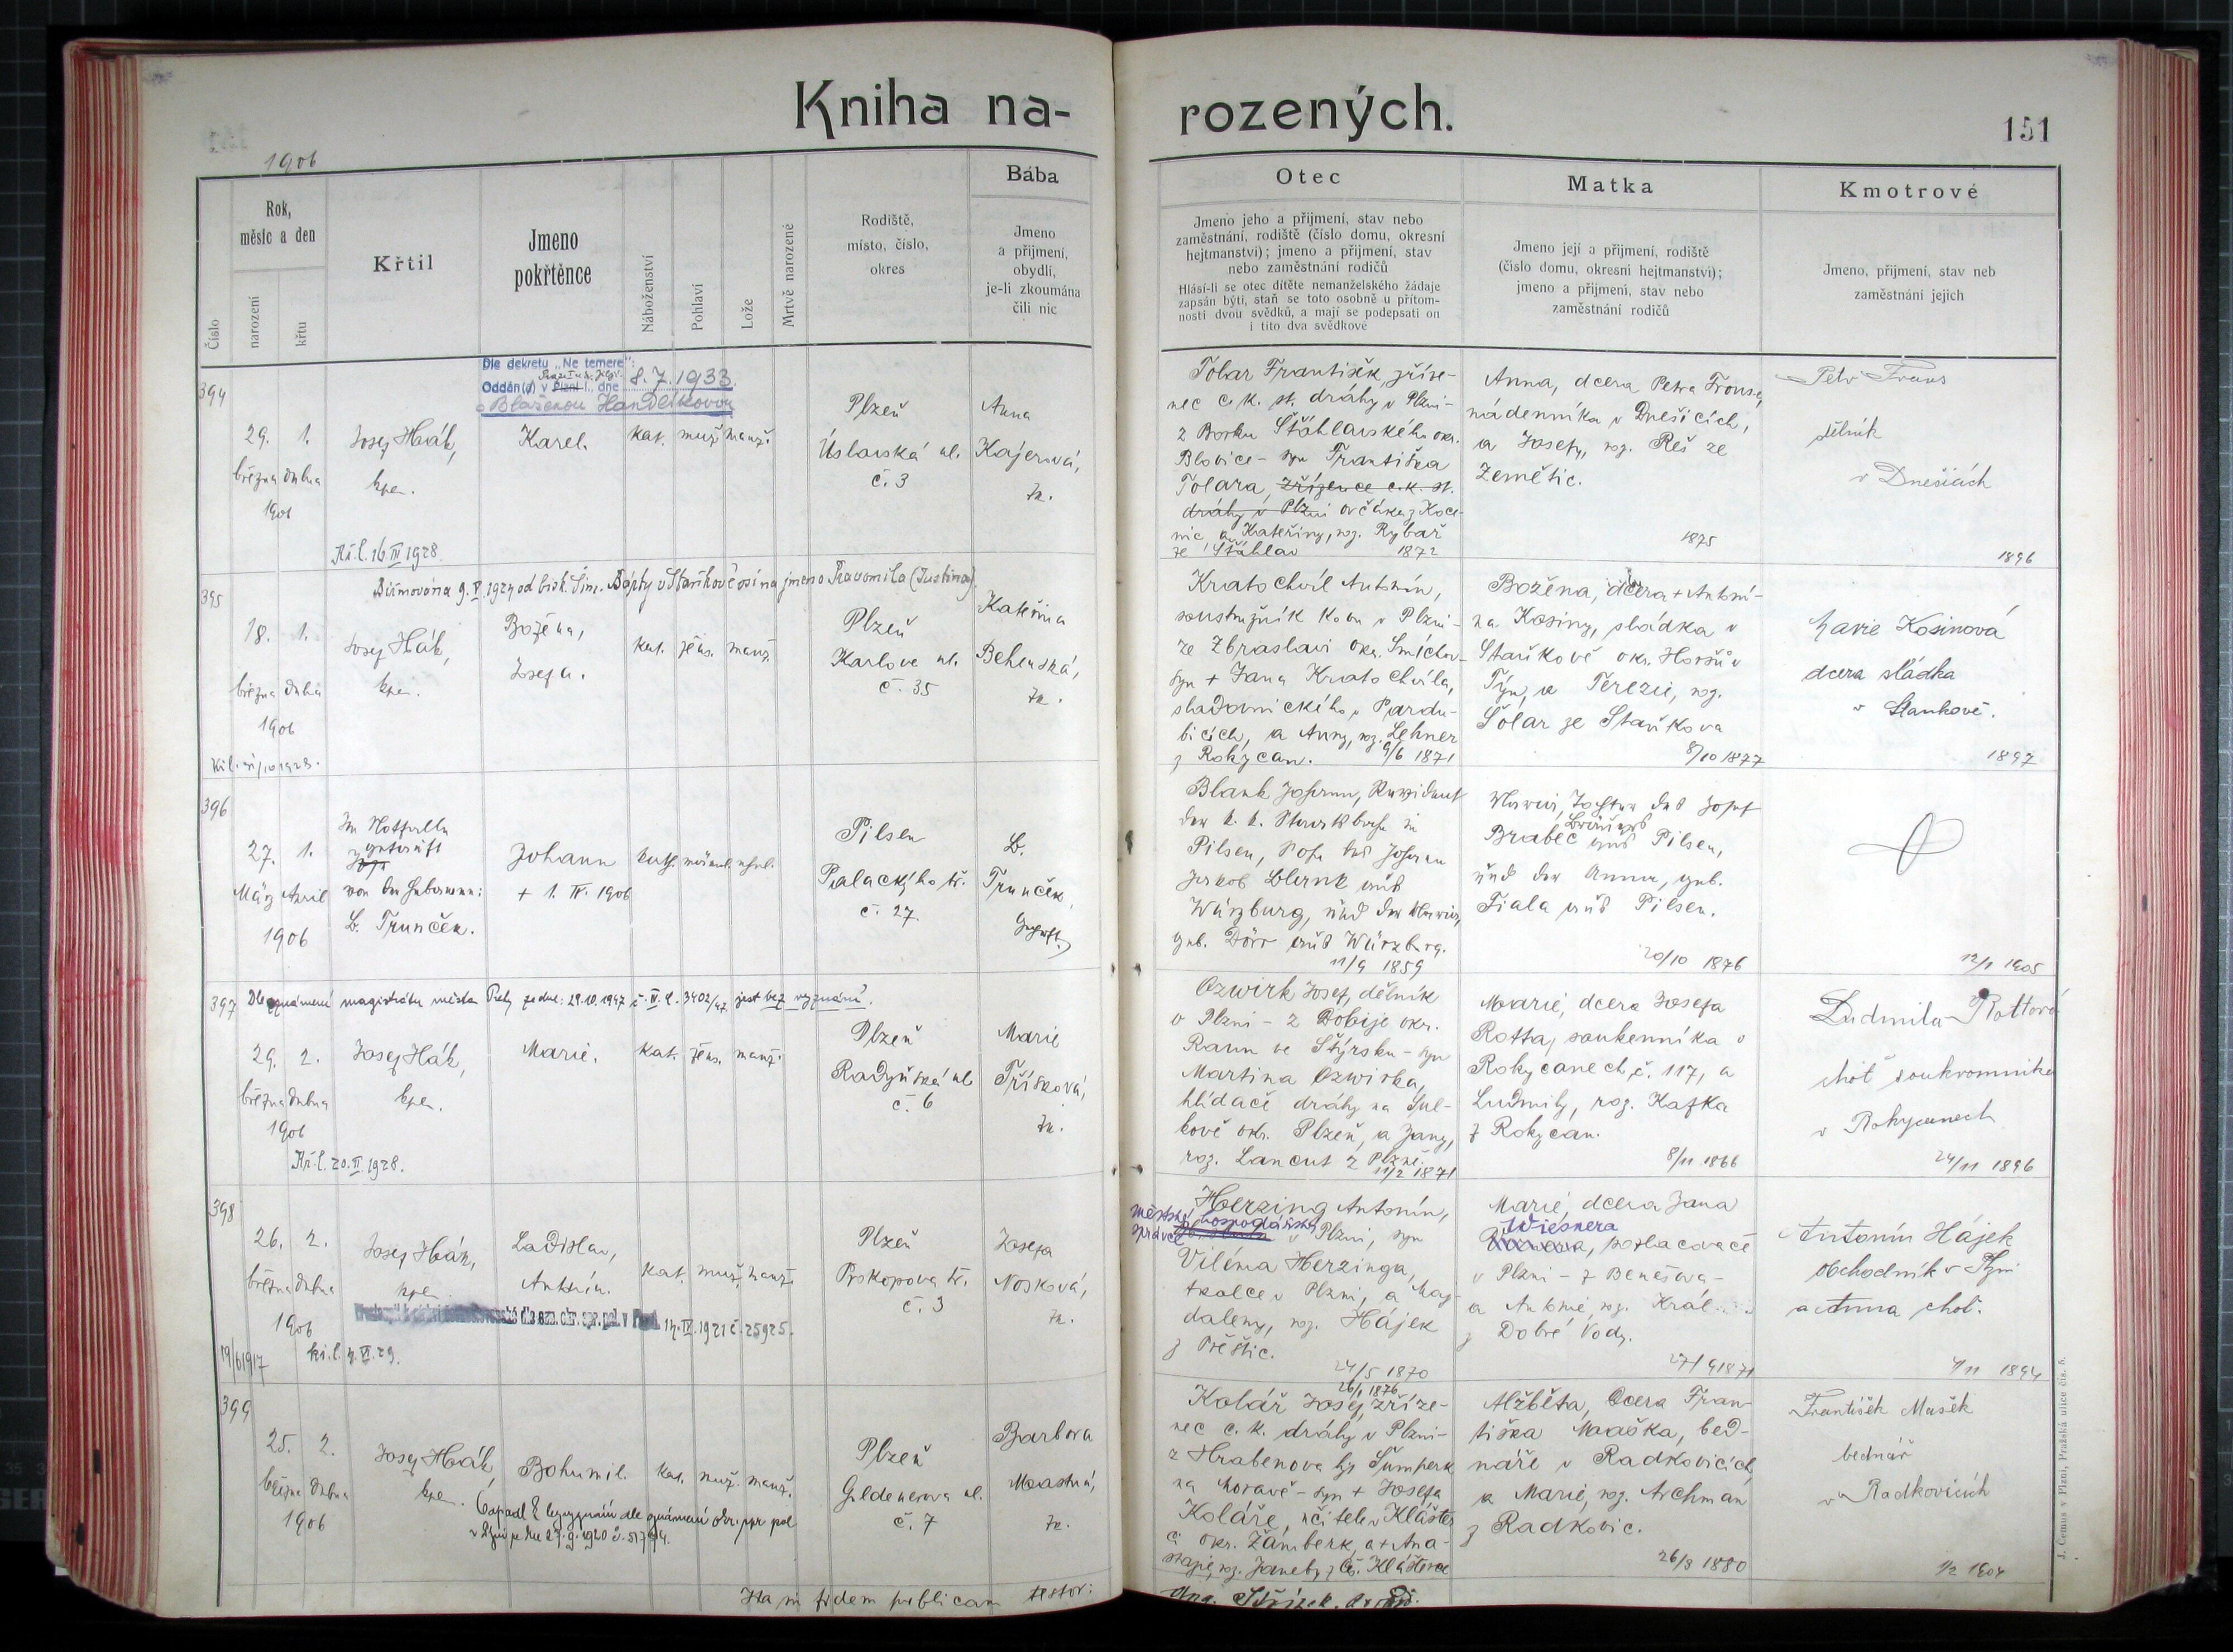 Kniha na-
rozených.
151
1906
Číslo
Rok,
měsíc a den
narození
křtu
Křtil
Jmeno
pokřtěnce
Náboženství
Pohlaví
Lože
Mrtvě narozené
Rodiště,
místo, číslo,
okres
Bába
Jmeno
a přijmení,
obydlí,
je-li zkoumána
čili nic
Otec
Jmeno jeho a přijmení, stav nebo
zaměstnání, rodiště (číslo domu, okresní
hejtmanství); jmeno a přijmení, stav
nebo zaměstnání rodičů
Hlásí-li se otec dítěte nemanželského žádaje
zapsán býti, staň se toto osobně u přítom-
nosti dvou svědků, a mají se podepsati on
i tito dva svědkové
Matka
Jmeno její a přijmení, rodiště
(číslo domu, okresní hejtmanství);
jmeno a přijmení, stav nebo
zaměstnání rodičů
Kmotrové
Jmeno, přijmení, stav neb
zaměstnání jejich
394
Dle dekretu „Ne temere":
Oddán(a) v Plzni I., dne 8.7.1933
s Blaženou Handlíkovou
29. 1.
března dubna
1906
Josef Hák,
kpl.
Karel.
kat. muž. manž.
Plzeň
Úslavská ul.
č. 3
Anna
Kajerová,
zk.
Kř. l. 16. III 1928.
Tolar František, zříze-
nec c. k. st. dráhy v Plzni-
z Borku Šťáhlavského okr.
Blovice - syn Františka
Tolara, zřízence c. k. st.
dráhy v Plzni ovčáka z Koce-
nic, a Kateřiny, roz. Rybář
ze Šťáhlav 1872
Anna, dcera Petra Frouse,
nádenníka v Dnešicích,
a Josefy, roz. Reš ze
Zemětic.
1875
Petr Frous
dělník
v Dnešicích
1896
395
Biřmována 9. V. 1924 od bisk. Šim. Bárty v Staňkově osína jmeno Pravomila (Justina).
18. 1.
března dubna
1906
Josef Hák,
kpl.
Božena,
Josefa.
kat. žens. manž.
Plzeň
Karlova ul.
č. 35
Kateřina
Behenská,
zk.
Kratochvíl Antonín,
soustružník kovu v Plzni-
ze Zbraslavi okr. Smíchov-
syn + Jana Kratochvíla,
sladovnického v Pardu-
bicích, a Anny, roz. Lehner
z Rokycan. 9/6 1871
Božena, dcera + Antoní-
na Kosiny, sládka v
Staňkově okr. Horšův
Týn, a Terezie, roz.
Šolar ze Staňkova
8/10 1877
Marie Kosinová
dcera sládka
v Staňkově.
1897
396
27. 1.
März April
1906
Im Notfalle
getauft
von der Hebamme:
B. Trunček.
Johann
+ 1. IV. 1906
kath. männl. ehel.
Pilsen
Palackýho tř.
č. 27.
B.
Trunček,
geprüft
Blank Johann, Revident
der k. k. Staatsbahn in
Pilsen, Sohn des Johann
Jakob Blank aus
Würzburg, und der Maria,
geb. Dörr aus Würzburg.
11/9 1859
Maria, Tochter des Josef
Brabec aus Pilsen,
und der Anna, geb.
Fiala aus Pilsen.
20/10 1876
12/1 1905
397
Dle oznámení magistrátu města Plzně ze dne: 29.10.1947 č. IV. l. 3402/47 jest bez vyznání.
29. 2.
března dubna
1906
Josef Hák,
kpl.
Marie.
kat. žens. manž.
Plzeň
Radyňská ul.
č. 6
Marie
Třísková,
zk.
Kř. l. 20. II 1928.
Ozwirk Josef, dělník
v Plzni - z Dobije okr.
Rann ve Štýrsku - syn
Martina Ozwirka,
hlídače dráhy na Sul-
kově okr. Plzeň, a Jany,
roz. Lancut z Plzně.
11/2 1871
Marie, dcera Josefa
Rotta, soukenníka v
Rokycanech č. 117, a
Ludmily, roz. Kafka
z Rokycan.
8/11 1866
Ludmila Rottová
choť soukromníka
v Rokycanech
24/11 1896
398
26. 2.
března dubna
1906
Josef Hák,
kpl.
Ladislav,
Antonín.
kat. muž. manž.
Plzeň
Prokopova tř.
č. 3
Josefa
Nosková,
zk.
19/6 1917
Herzing Antonín,
městský hospodářský
správce v Plzni, syn
Viléma Herzinga,
tkalce v Plzni, a Mag-
daleny, roz. Hájek
z Přeštic.
24/5 1870
Marie, dcera Jana
Wiesnera
pozlacovače
v Plzni - z Benešova -
a Antonie, roz. Král
z Dobré Vody.
27/9 1871
Antonín Hájek
obchodník v Plzni
a Anna choť.
1894
399
25. 2.
března dubna
1906
Josef Hák,
kpl.
Bohumil.
kat. muž. manž.
Plzeň
Goldenerova ul.
č. 7
Barbora
Mastná,
zk.
26/1 1876
Kolář Josef, zříze-
nec c. k. dráhy v Plzni-
z Hrabenova hejt. Šumperk
na Moravě - syn + Josefa
Koláře, učitele v Klášter-
ci okr. Žamberk, a + Ana-
stazie, roz. Janeby z Čes. Klášterce
Alžběta, dcera Fran-
tiška Maška, bed-
náře v Radkovicích
a Marie, roz. Archman
z Radkovic.
26/3 1880
František Mašek
bednář
v Radkovicích
1/2 1904
Ita in fidem publicam testor:
J. Černus v Plzni, Pražská ulice čís. 5.